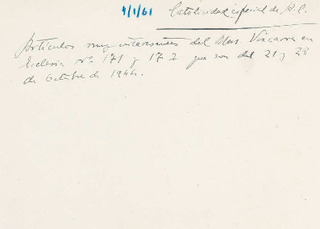 9/1/61 Catolicidad oficial de A.C.
Artículos muy interesantes del Mons. Vizcarra en
Ecclesia nº 171 y 172 que son del 21 y 28
de Octubre de 1944.